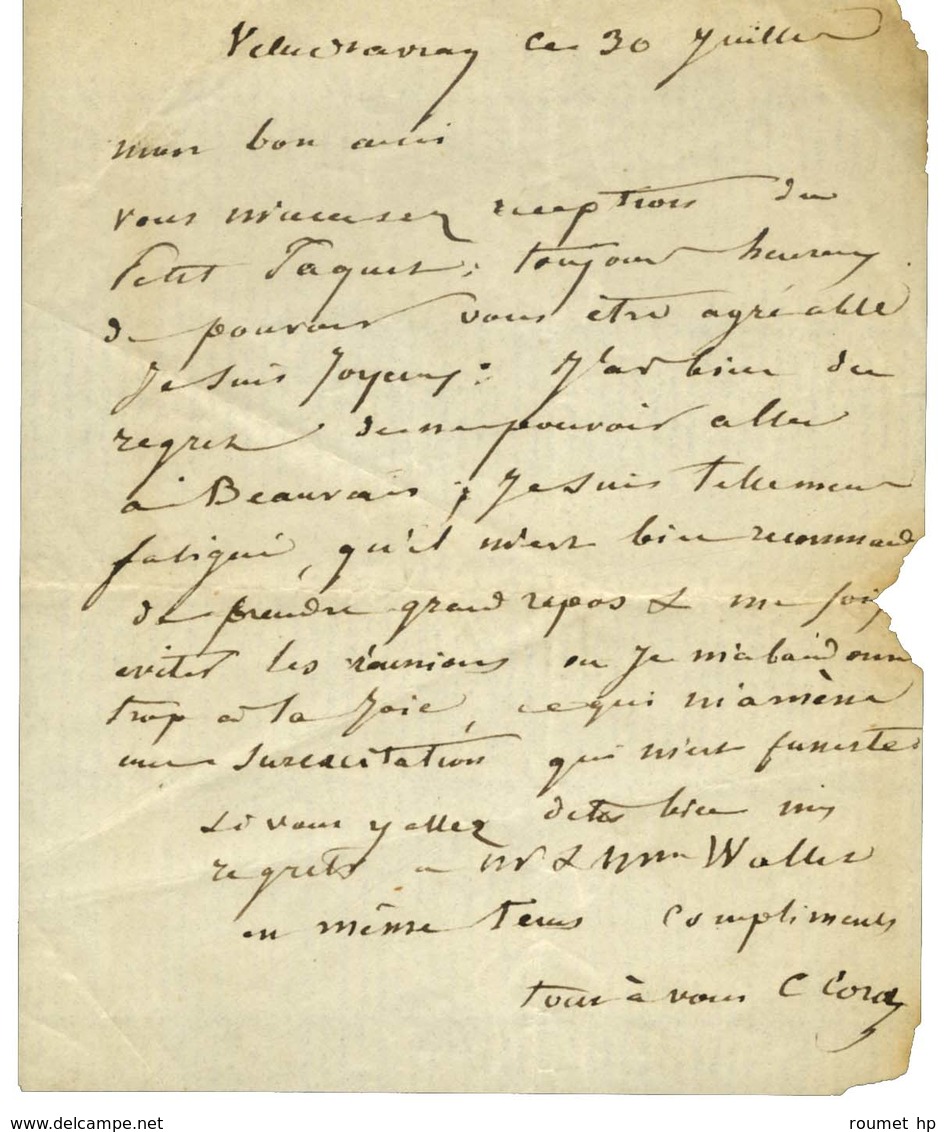 Ville d'avray ce 30 Juillet
mon bon ami
vous m'accusez reception du
Petit Paquet; toujour heureux
de pouvoir vous être agréable
Je suis Joyeux: J'ai bien du
regret de ne pouvoir aller
à Beauvais; Je suis tellement
fatigué, qu'il m'est bien recommandé
de prendre grand repos &
eviter les réunions ou Je m'abandonne
trop à la Joie, ce qui m'amène
une Surexcitation qui m'est funeste
Si vous y allez dites bien mes
regrets a Mr & Mme Wallet
en même tems compliments
tout à vous C Corot
www.delcampe.net
roumet hp